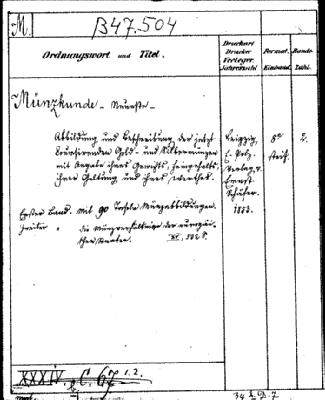 M.
B47.504
Ordnungswort und Titel.
Druckort
Drucker
Verleger.
Jahreszahl
Format.
Einband.
Bände-
Zahl.
Münzkunde - Neueste -
Abbildung und Beschreibung der jetzt
coursirenden Gold- und Silbermünzen
mit Angabe ihres Gewichts, Feingehalts,
ihrer Geltung und ihres Werthes.
Leipzig,
E. Polz.
Verlag v.
Ernst
Schäfer.
1853.
8°
steif.
2.
Erster Band. Mit 90 Tafeln Münzabbildungen.
Zweiter " die Münzverhältnisse der europäi-
schen Staaten. XV, 502 S.
XXXIV. C. 67 1.2.